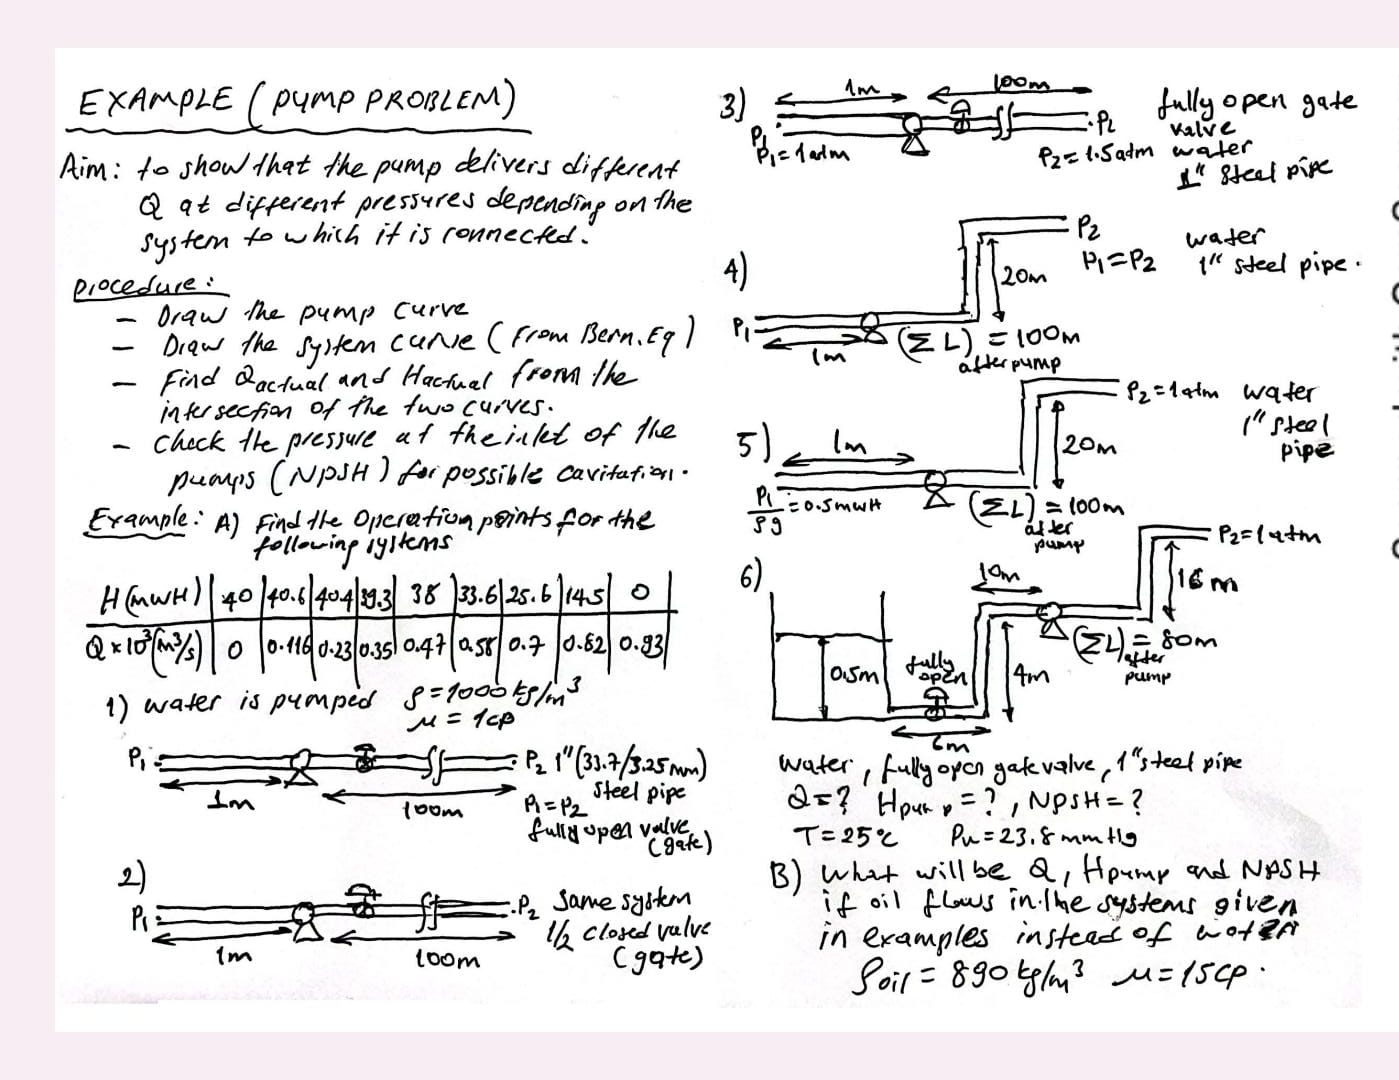 EXAMPLE (PUMP PROBLEM)
Aim: to show that the pump delivers different
Q at different pressures depending on the
system to which it is connected.
Procedure:
- Draw the pump curve
- Draw the system curve (from Bern. Eq)
- Find Qactual and Hactual from the
intersection of the two curves.
- Check the pressure at the inlet of the
pumps (NPSH) for possible cavitation.
Example: A) Find the Operation points for the
following systems
H (mWH) | 40 | 40.6 | 40.4 | 39.3 | 38 | 33.6 | 25.6 | 14.5 | 0
Q x 10³ (m³/s) | 0 | 0.116 | 0.23 | 0.35 | 0.47 | 0.58 | 0.7 | 0.82 | 0.93
1) water is pumped ρ = 1000 kg/m³
μ = 1cp
P₁ P₂ 1" (33.7/3.25 mm)
steel pipe
1m 100m P₁ = P₂
fully open valve
(gate)
2)
P₁ P₂ Same system
1/2 closed valve
1m 100m (gate)
3) 1m 100m fully open gate
valve
P₁ P₂ water
P₁ = 1 atm P₂ = 1.5 atm 1" Steel pipe
4) P₂ water
20m P₁ = P₂ 1" steel pipe.
P₁ 1m (ΣL) = 100m
after pump
5) 1m P₂ = 1 atm water
20m 1" steel
pipe
P₁/ρg = 0.5 mWH (ΣL) = 100m
after
pump
6) 10m P₂ = 1 atm
16 m
(ΣL) = 80m
after
pump
0.5m fully
open 4m
water, fully open gate valve, 1" steel pipe
Q = ? Hpump = ?, NPSH = ?
T = 25°C Pv = 23.8 mmHg
B) What will be Q, Hpump and NPSH
if oil flows in the systems given
in examples instead of water
ρoil = 890 kg/m³ μ = 15cp.